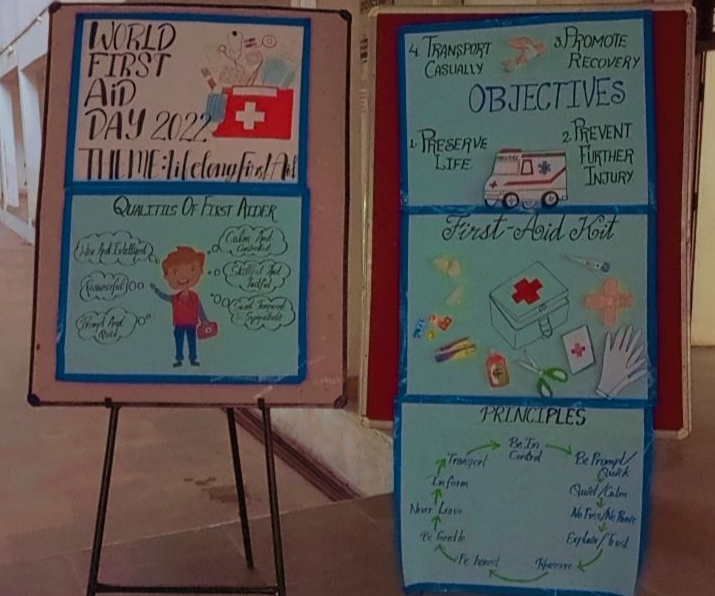 WORLD
FIRST
AiD
DAY 2022
THEME: Lifelong First Aid
QUALITIES OF FIRST AIDER
Wise And Intelligent
Resourceful
Prompt And
Quick
Calm And
Controlled
Skillful And
Tactful
Even Tempered
Sympathetic
4. TRANSPORT
CASUALLY
3. PROMOTE
RECOVERY
OBJECTIVES
1. PRESERVE
LIFE
2. PREVENT
FURTHER
INJURY
First-Aid Kit
PRINCIPLES
Be In
Control
Be Prompt/
Quick
Quiet/Calm
No Fuss/No Panic
Explain/Trust
Reassure
Be honest
Be Gentle
Never Leave
Inform
Transport